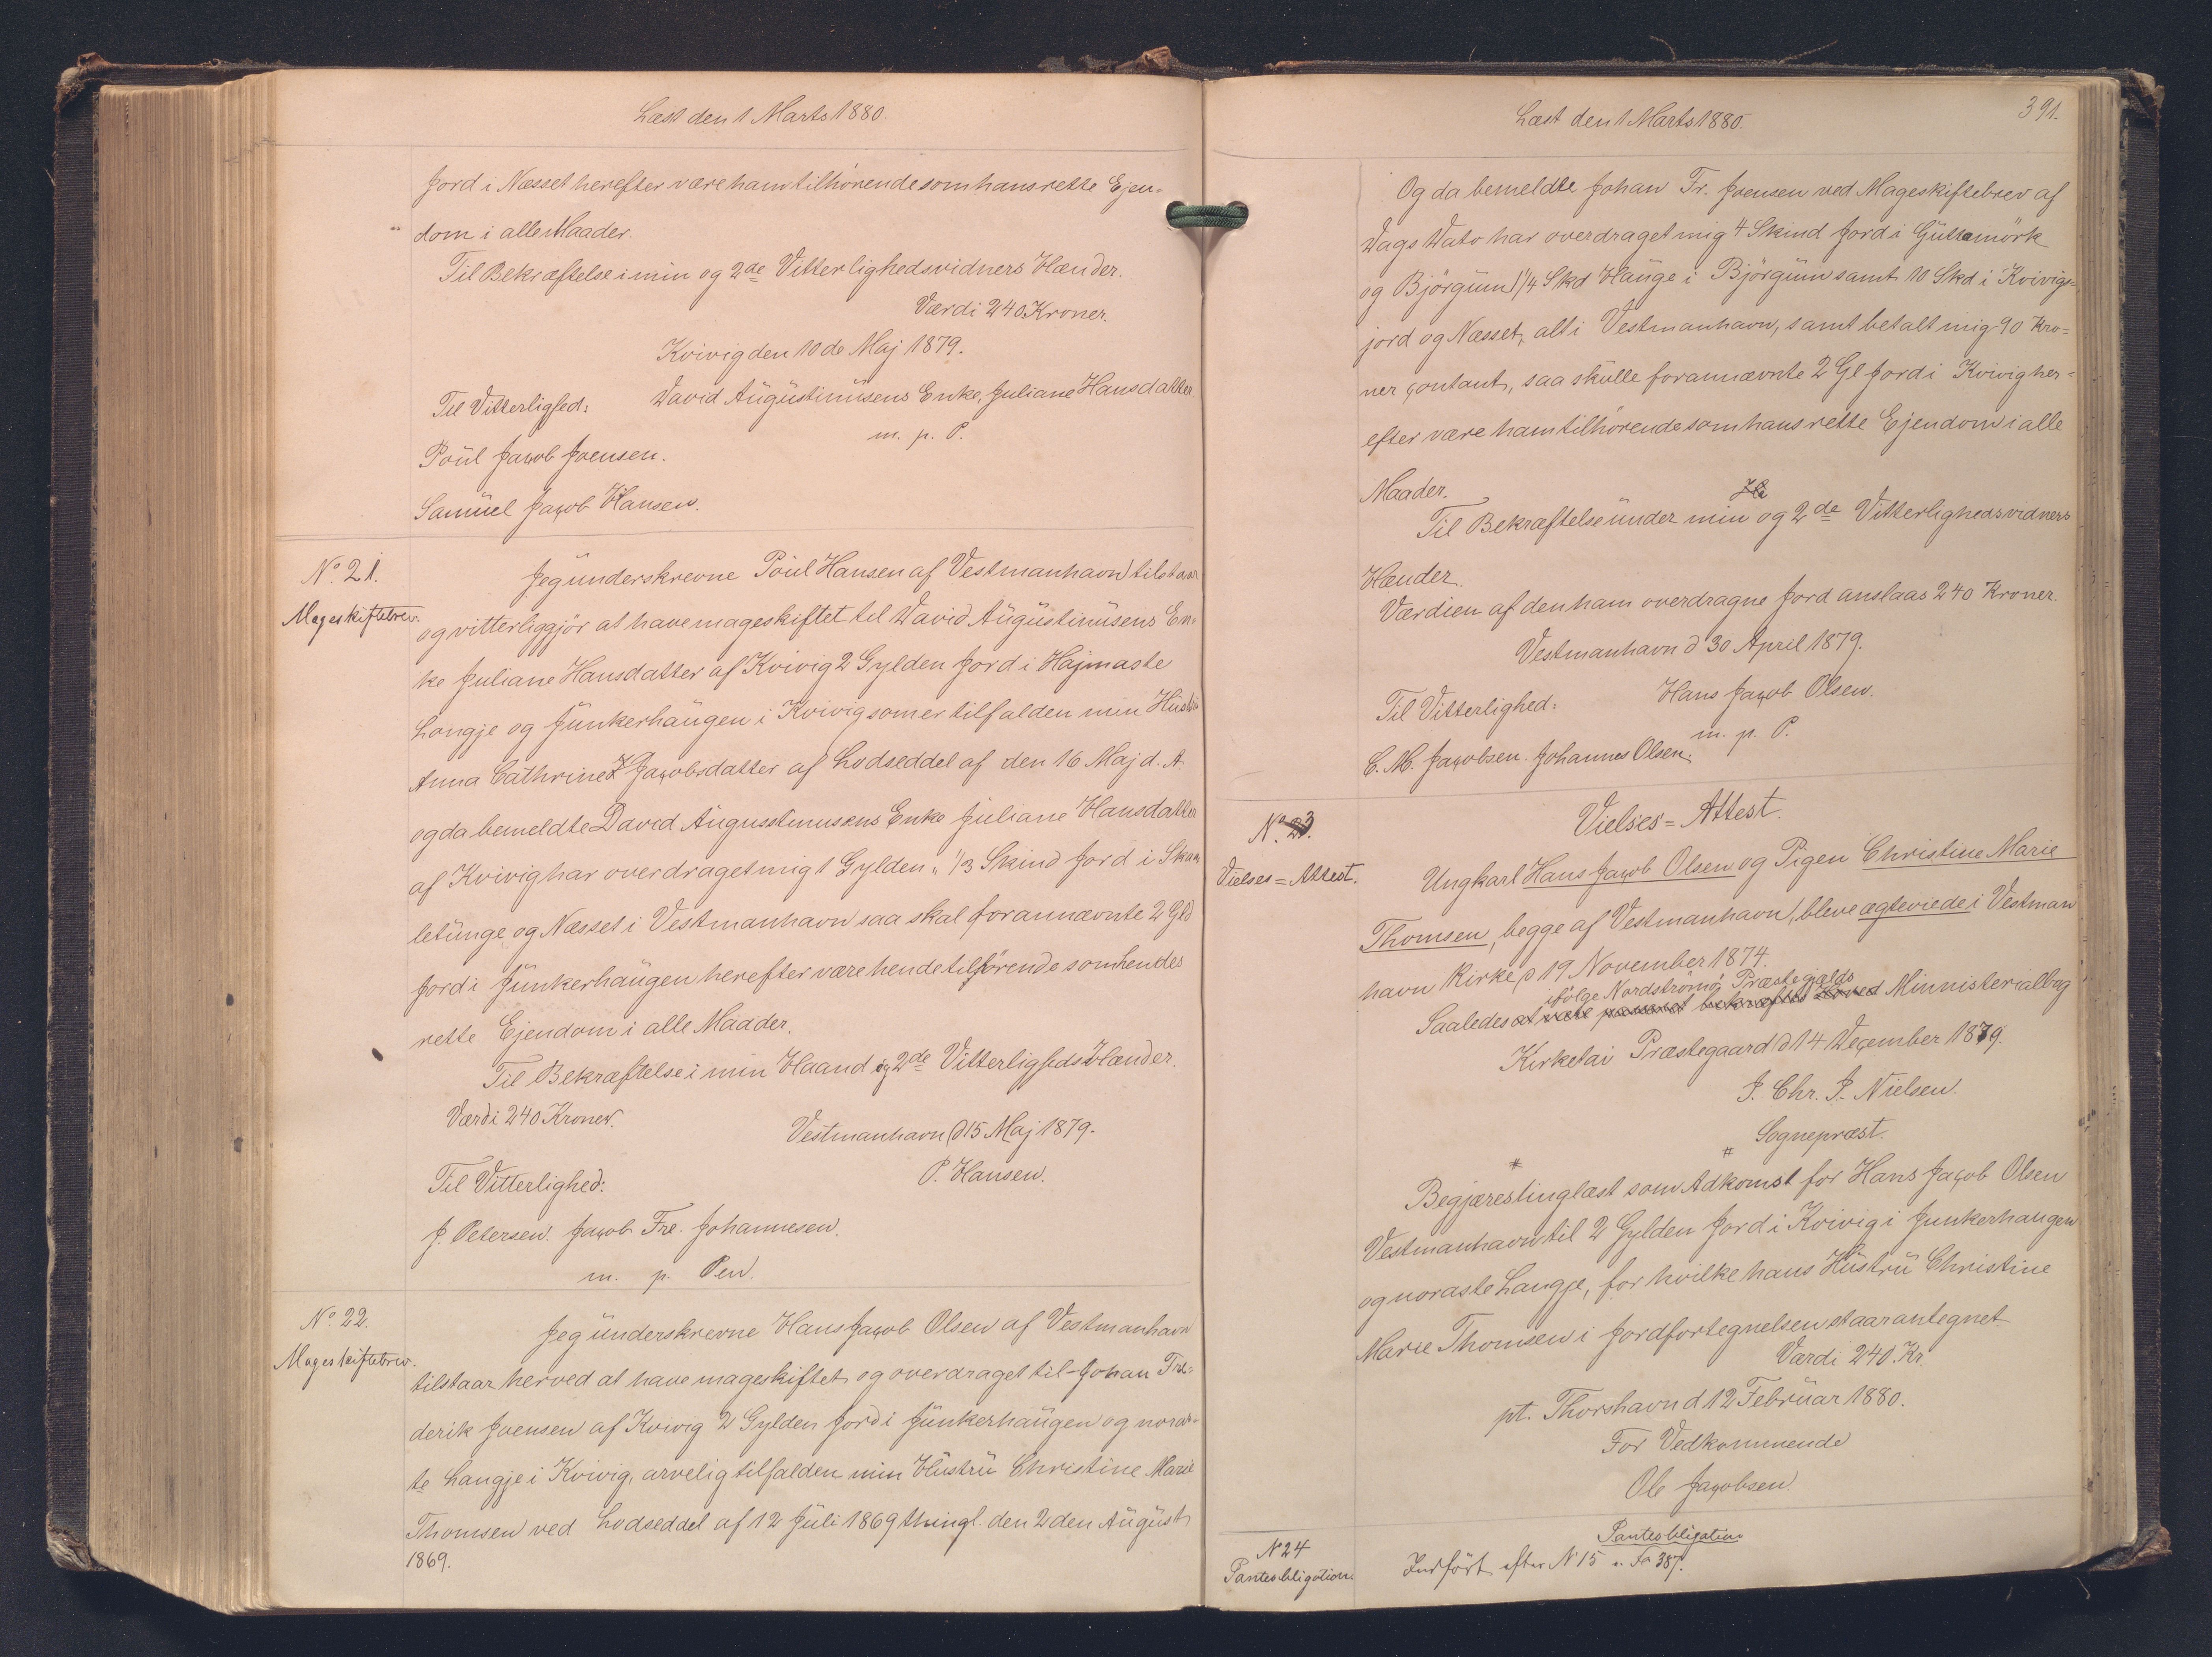 Læst den 1 Marts 1880.
Jord i Næsset herefter være ham tilhörende som hans rette Ejen-
dom i alle Maader.
Til Bekræftelse i min og 2de Vitterlighedsvidners Hænder.
Værdi 240 Kroner.
Kvivig den 10de Maj 1879.
David Augustinusens Enke, Juliane Hansdatter
Til Vitterlighed:
m. p. P.
Poul Jacob Joensen.
Samuel Jacob Hansen.
No. 21.
Mageskiftebrev.
Jeg underskrevne Poul Hansen af Vestmanhavn tilstaar
og vitterliggjör at have mageskiftet til David Augustinusens En-
ke Juliane Hansdatter af Kvivig 2 Gylden Jord i Hajmaste
Longje og Junkerhaugen i Kvivig som er tilfalden min Hustru
Anna Cathrine Jacobsdatter af Lodseddel af den 16 Maj d. A.
og da bemeldte David Augusstinusens Enke Juliane Hansdatter
af Kvivig har overdraget mig 1 Gylden " 1/3 Skind Jord i Skaa
letunge og Næsset i Vestmanhavn saa skal forannævnte 2 Gld
Jord i Junkerhaugen herefter være hende tilhörende som hendes
rette Ejendom i alle Maader.
Til Bekræftelse i min Haand og 2de Vitterligheds Hænder.
Værdi 240 Kroner.
Vestmanhavn d 15 Maj 1879.
Til Vitterlighed:
P. Hansen.
J. Petersen. Jacob Fre. Johannesen.
m. p. Pen.
No. 22.
Mageskiftebrev.
Jeg underskrevne Hans Jacob Olsen af Vestmanhavn
tilstaar herved at have mageskiftet og overdraget til Johan Fre-
derik Joensen af Kvivig 2 Gylden Jord i Junkerhaugen og noras-
te Langje i Kvivig, arvelig tilfalden min Hustru Christine Marie
Thomsen ved Lodseddel af 12 Juli 1869 thingl. den 2den August
1869.
Læst den 1 Marts 1880.
391.
Og da bemeldte Johan Fr. Joensen ved Mageskiftebrev af
Dags Dato har overdraget mig 4 Skind Jord i Guttemörk
og Björgum 1/4 Skd Hauge i Björgum samt 10 Skd i Kvivigs-
jord og Næsset, alt i Vestmanhavn, samt betalt mig 90 Kro-
ner contant, saa skulle forannævnte 2 Gl Jord i Kvivig her-
efter være ham tilhörende som hans rette Ejendom i alle
Maader.
Til Bekræftelse under min og 2de Vitterlighedsvidners
Hænder.
Værdien af den ham overdragne Jord anslaas 240 Kroner.
Vestmanhavn d 30 April 1879.
Til Vitterlighed:
Hans Jacob Olsen.
m. p. P.
C. M. Jacobsen. Johannes Olsen.
No. 23.
Vielses=Attest.
Vielses=Attest.
Ungkarl Hans Jacob Olsen og Pigen Christine Marie
Thomsen, begge af Vestmanhavn, bleve ægteviede i Vestman
havn Kirke d 19 November 1874.
ifölge Nordströmö Præstegjælds
Saaledes at være passeret bekræftes herved Ministerialbog
Kirketai Præstegaard d 14 December 1879.
J. Chr. J. Nielsen.
Sognepræst.
Begjæres tinglæst som Adkomst for Hans Jacob Olsen
Vestmanhavn til 2 Gylden Jord i Kvivig i Junkerhaugen
og noraste Langje, for hvilke hans Hustru Christine
Marie Thomsen i Jordfortegnelsen staar antegnet
Værdi 240. Kr.
pt. Thorshavn d 12 Februar 1880.
For Vedkommende
Ole Jacobsen.
N 24
Pantobligation.
Pantobligation
Indfört efter N 15 a. Fo 387.